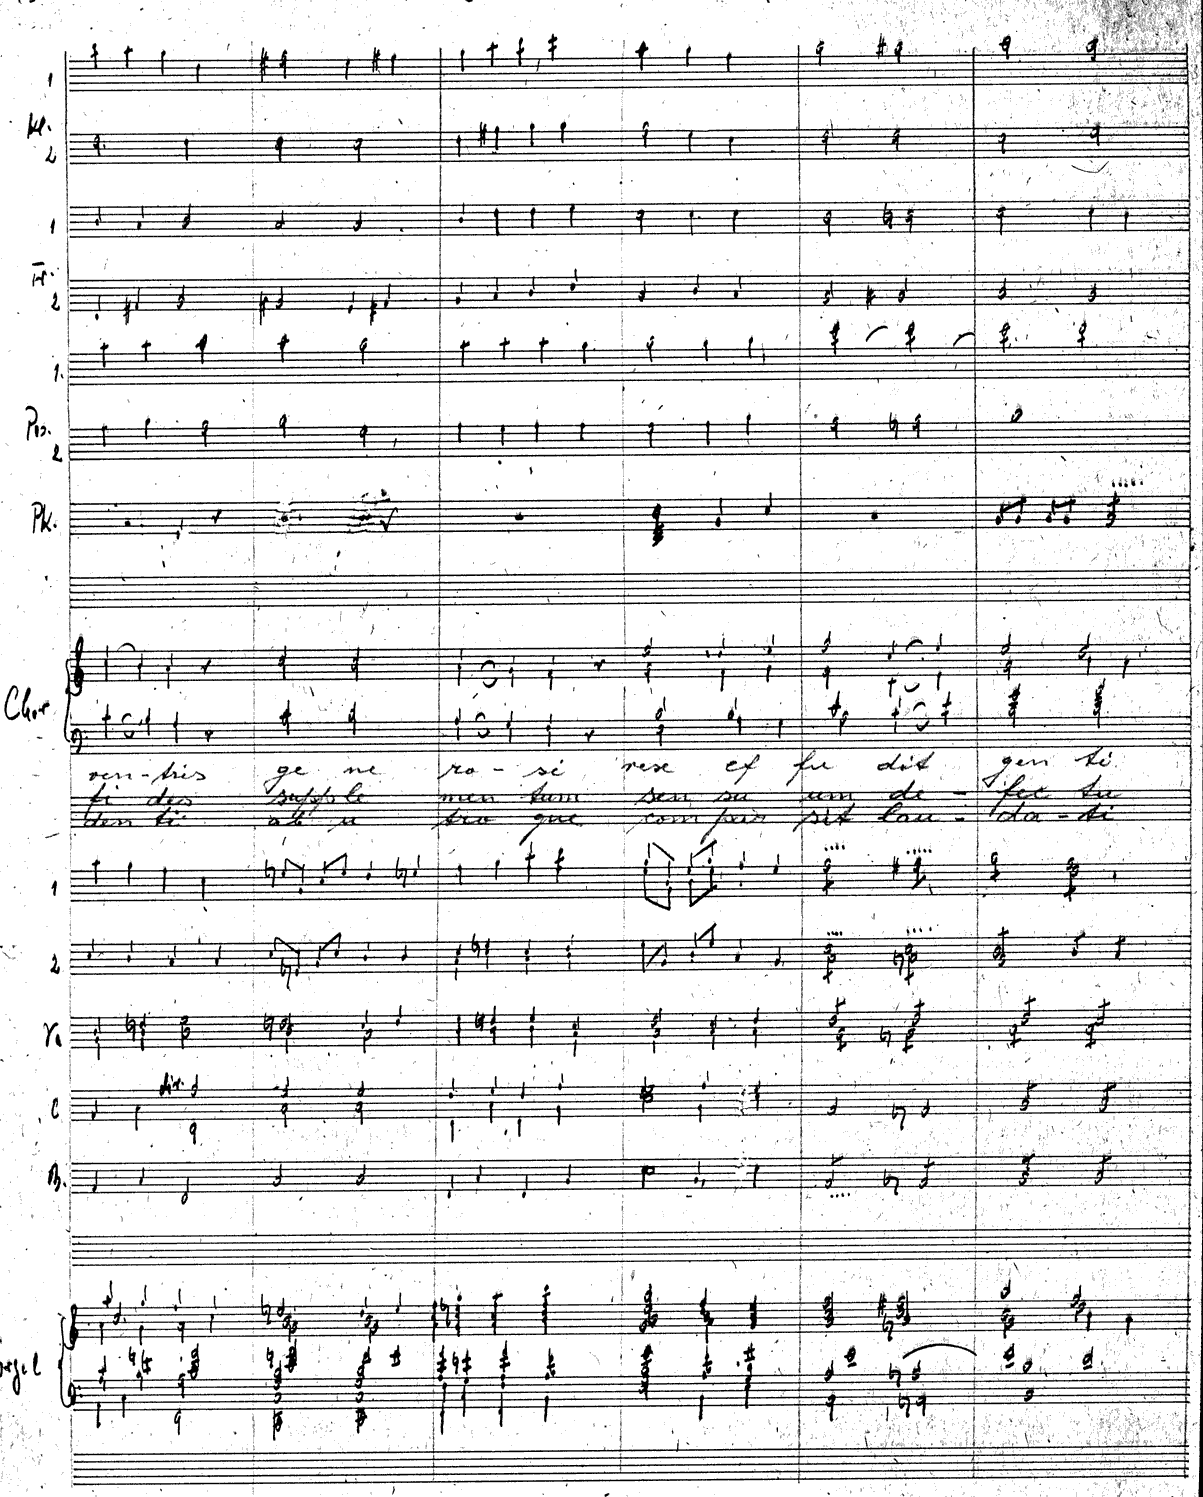 1
Kl.
2
1
Tr.
2
1.
Pos.
2
Pk.
Chor
ven-tris ge ne ro - si rex ef fu dit gen ti
fi des supple men tum sen su um de - fec tu
den ti ab u tro que com par sit lau - da - ti
1
2
Va
div.
C
B.